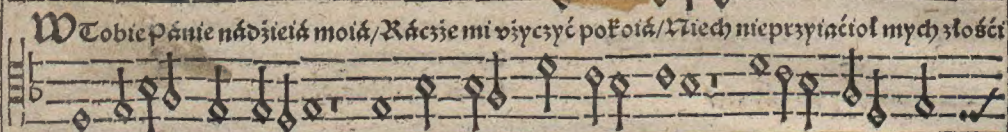 W Tobie Pánie nádźieiá moiá/Ráczże mi vżyczyć pokoiá/Niech nieprzyiaćioł mych złośći